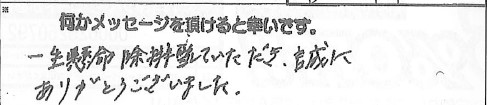 何かメッセージを頂けると幸いです。
一生懸命 除排雪していただき、誠に
ありがとうございました。